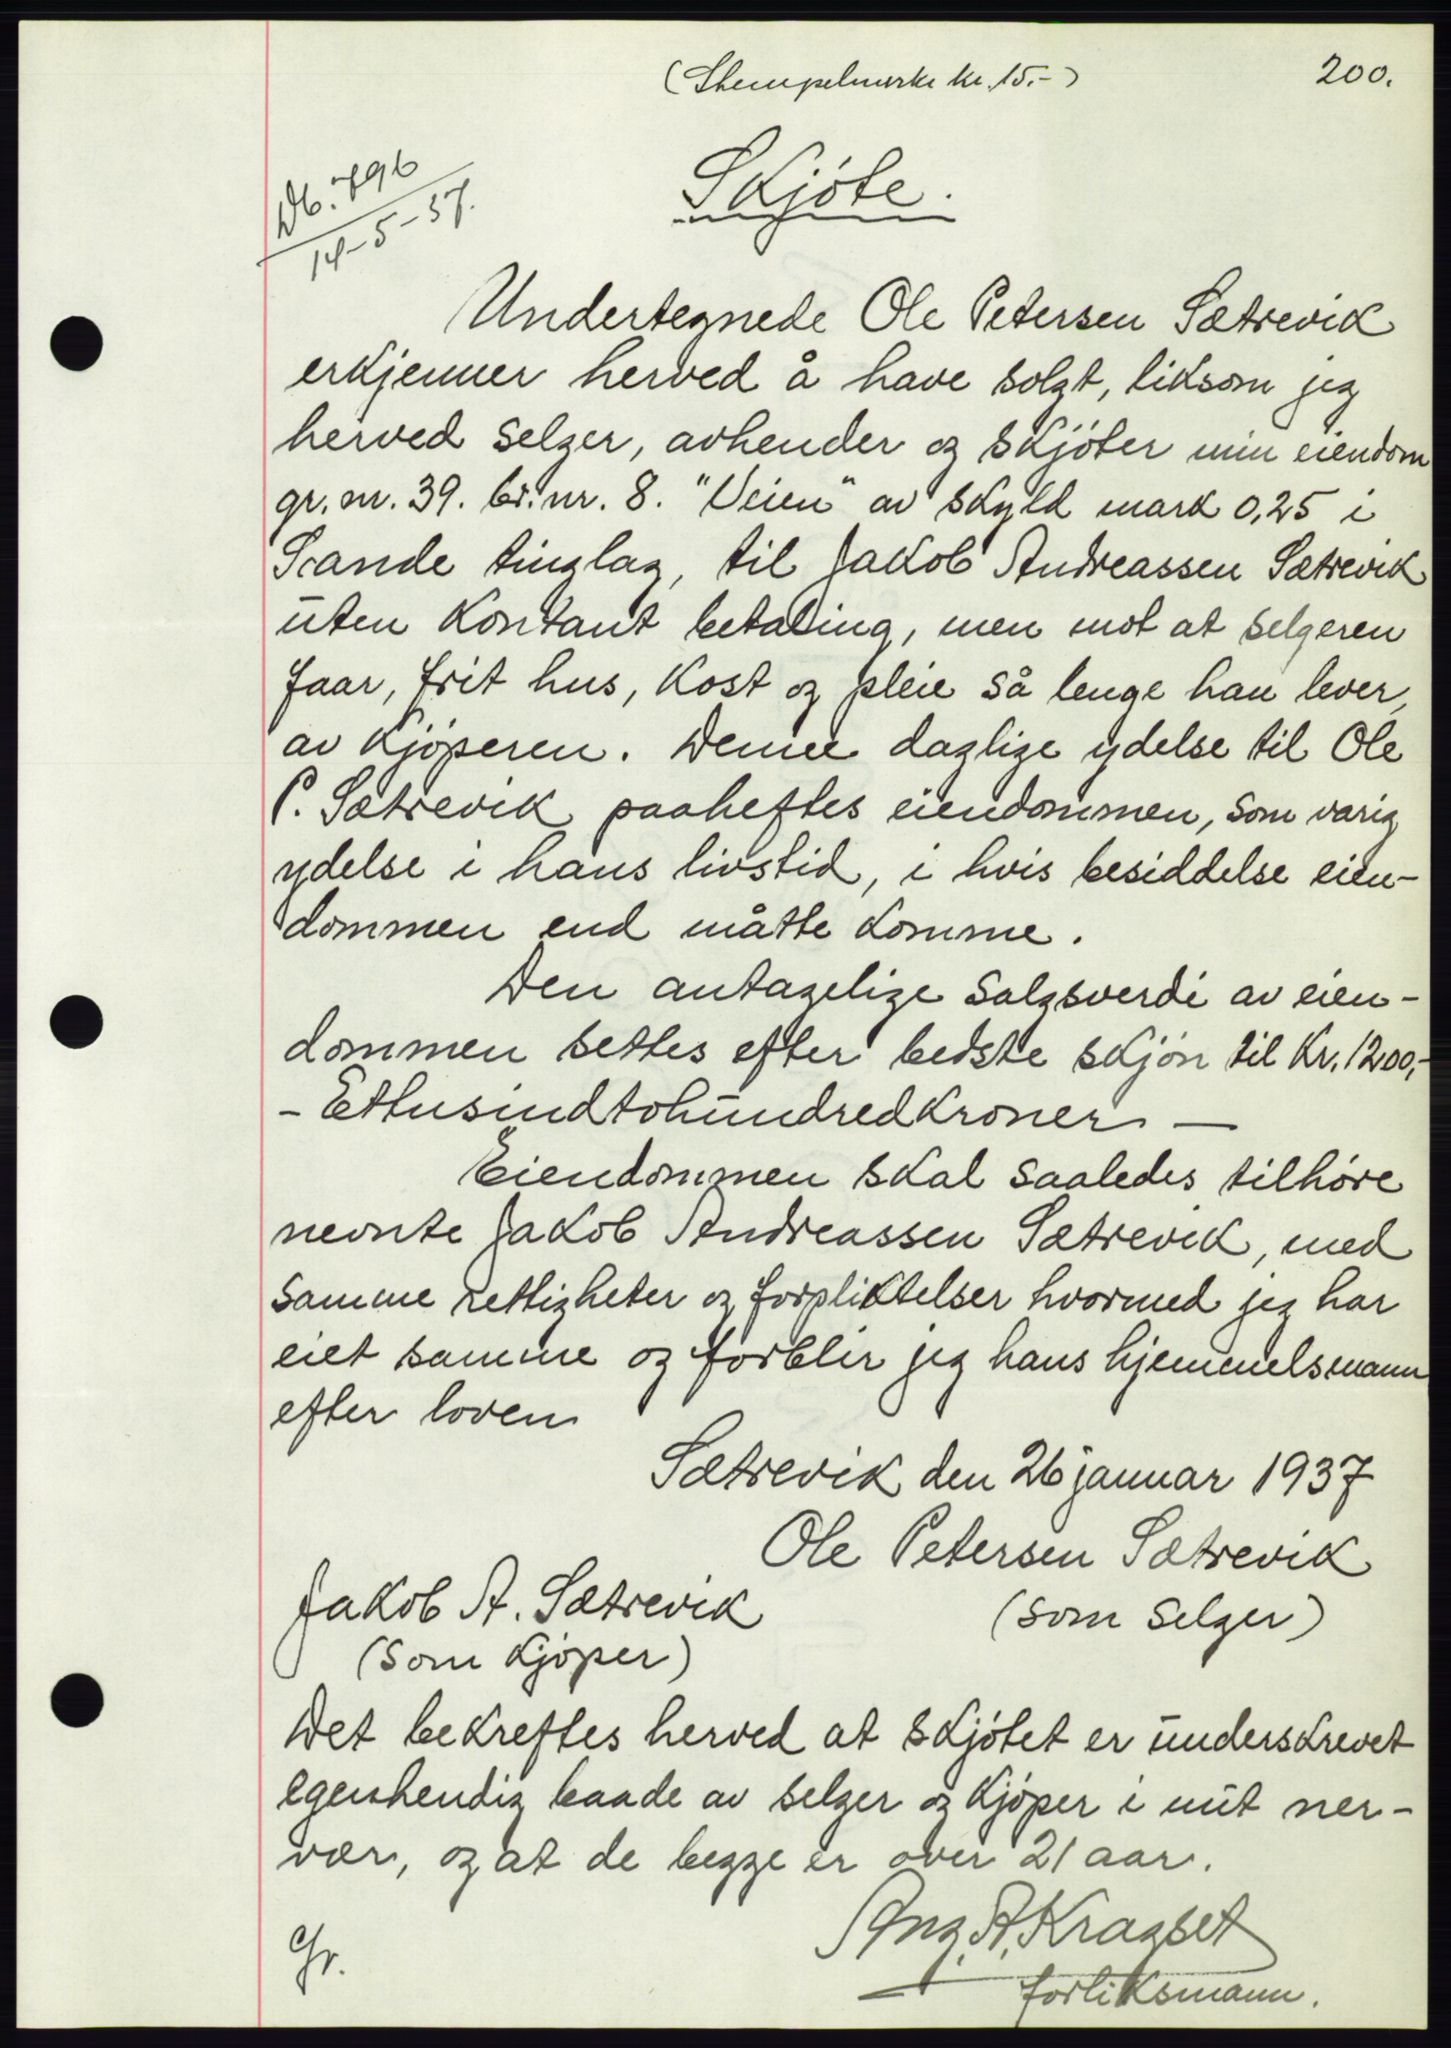 (Stempelmerke kr. 15.-)
200.
Db. 796
14-5-37.
Skjöte.
Undertegnede Ole Petersen Sætrevik
erkjenner herved å have solgt, liksom jeg
herved selger, avhender og skjöter min eiendom
gr. nr. 39. br. nr. 8. "Veien" av skyld mark 0,25 i
Sande tinglag, til Jakob Andreassen Sætrevik
uten kontant betaling, men mot at selgeren
faar, frit hus, kost og pleie så lenge han lever,
av kjöperen. Denne daglige ydelse til Ole
P. Sætrevik paaheftes eiendommen, som varig
ydelse i hans livstid, i hvis besiddelse eien-
dommen end måtte komme.
Den antagelige salgsverdi av eien-
dommen settes efter bedste skjön til kr. 1200,-
- Ettusindtohundredkroner -
Eiendommen skal saaledes tilhöre
nevnte Jakob Andreassen Sætrevik, med
samme rettigheter og forpliktelser hvormed jeg har
eiet samme og forblir jeg hans hjemmelsmann
efter loven
Sætrevik den 26 januar 1937
Ole Petersen Sætrevik
Jakob A. Sætrevik
(som selger)
(som kjöper)
Det bekreftes herved at skjötet er underskrevet
egenhendig baade av selger og kjöper i mit ner-
vær, og at de begge er over 21 aar.
Ang. A. Kragset
Gr.
forliksmann.